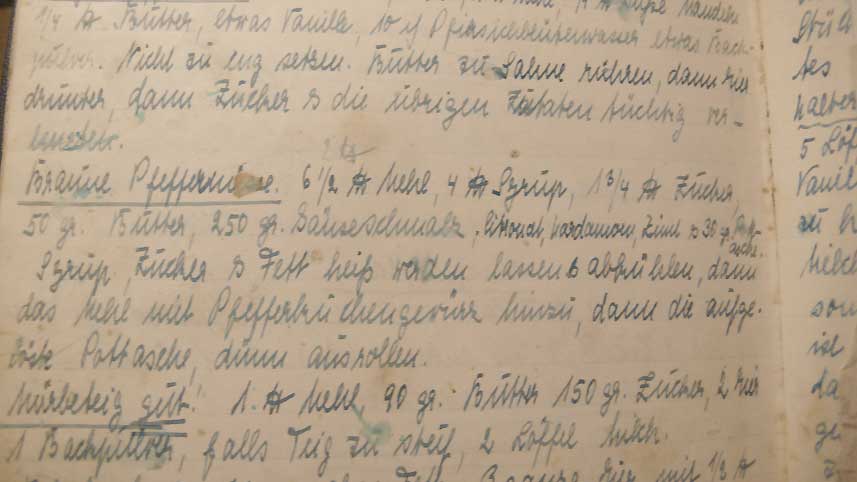 1/4 ℔ Butter, etwas Vanille, 10 gr Pfirsichblütenwasser etwas Back-
pulver. Nicht zu eng setzen. Butter zu Sahne rühren, dann Eier
drunter, dann Zucker & die übrigen Zutaten tüchtig ver-
kneten.
2 ℔
Braune Pfeffernüsse. 6 1/2 ℔ Mehl, 4 ℔ Syrup, 1 3/4 ℔ Zucker,
50 gr. Butter, 250 gr. Gänseschmalz, Citronat, Kardamom, Zimt & 30 gr. Pott-
asche.
Syrup, Zucker & Fett heiß werden lassen & abkühlen, dann
das Mehl mit Pfefferkuchengewürz hinzu, dann die aufge-
löste Pottasche, dünn ausrollen.
Mürbeteig gut! 1. ℔ Mehl, 90 gr. Butter 150 gr. Zucker, 2 Eier
1 Backpulver, falls Teig zu steif, 2 Löffel Milch.
Eier mit 1/2 ℔
Stüc
tes
halter
5 Löf
Vanil
zu
Milch
son
ist
da
ge